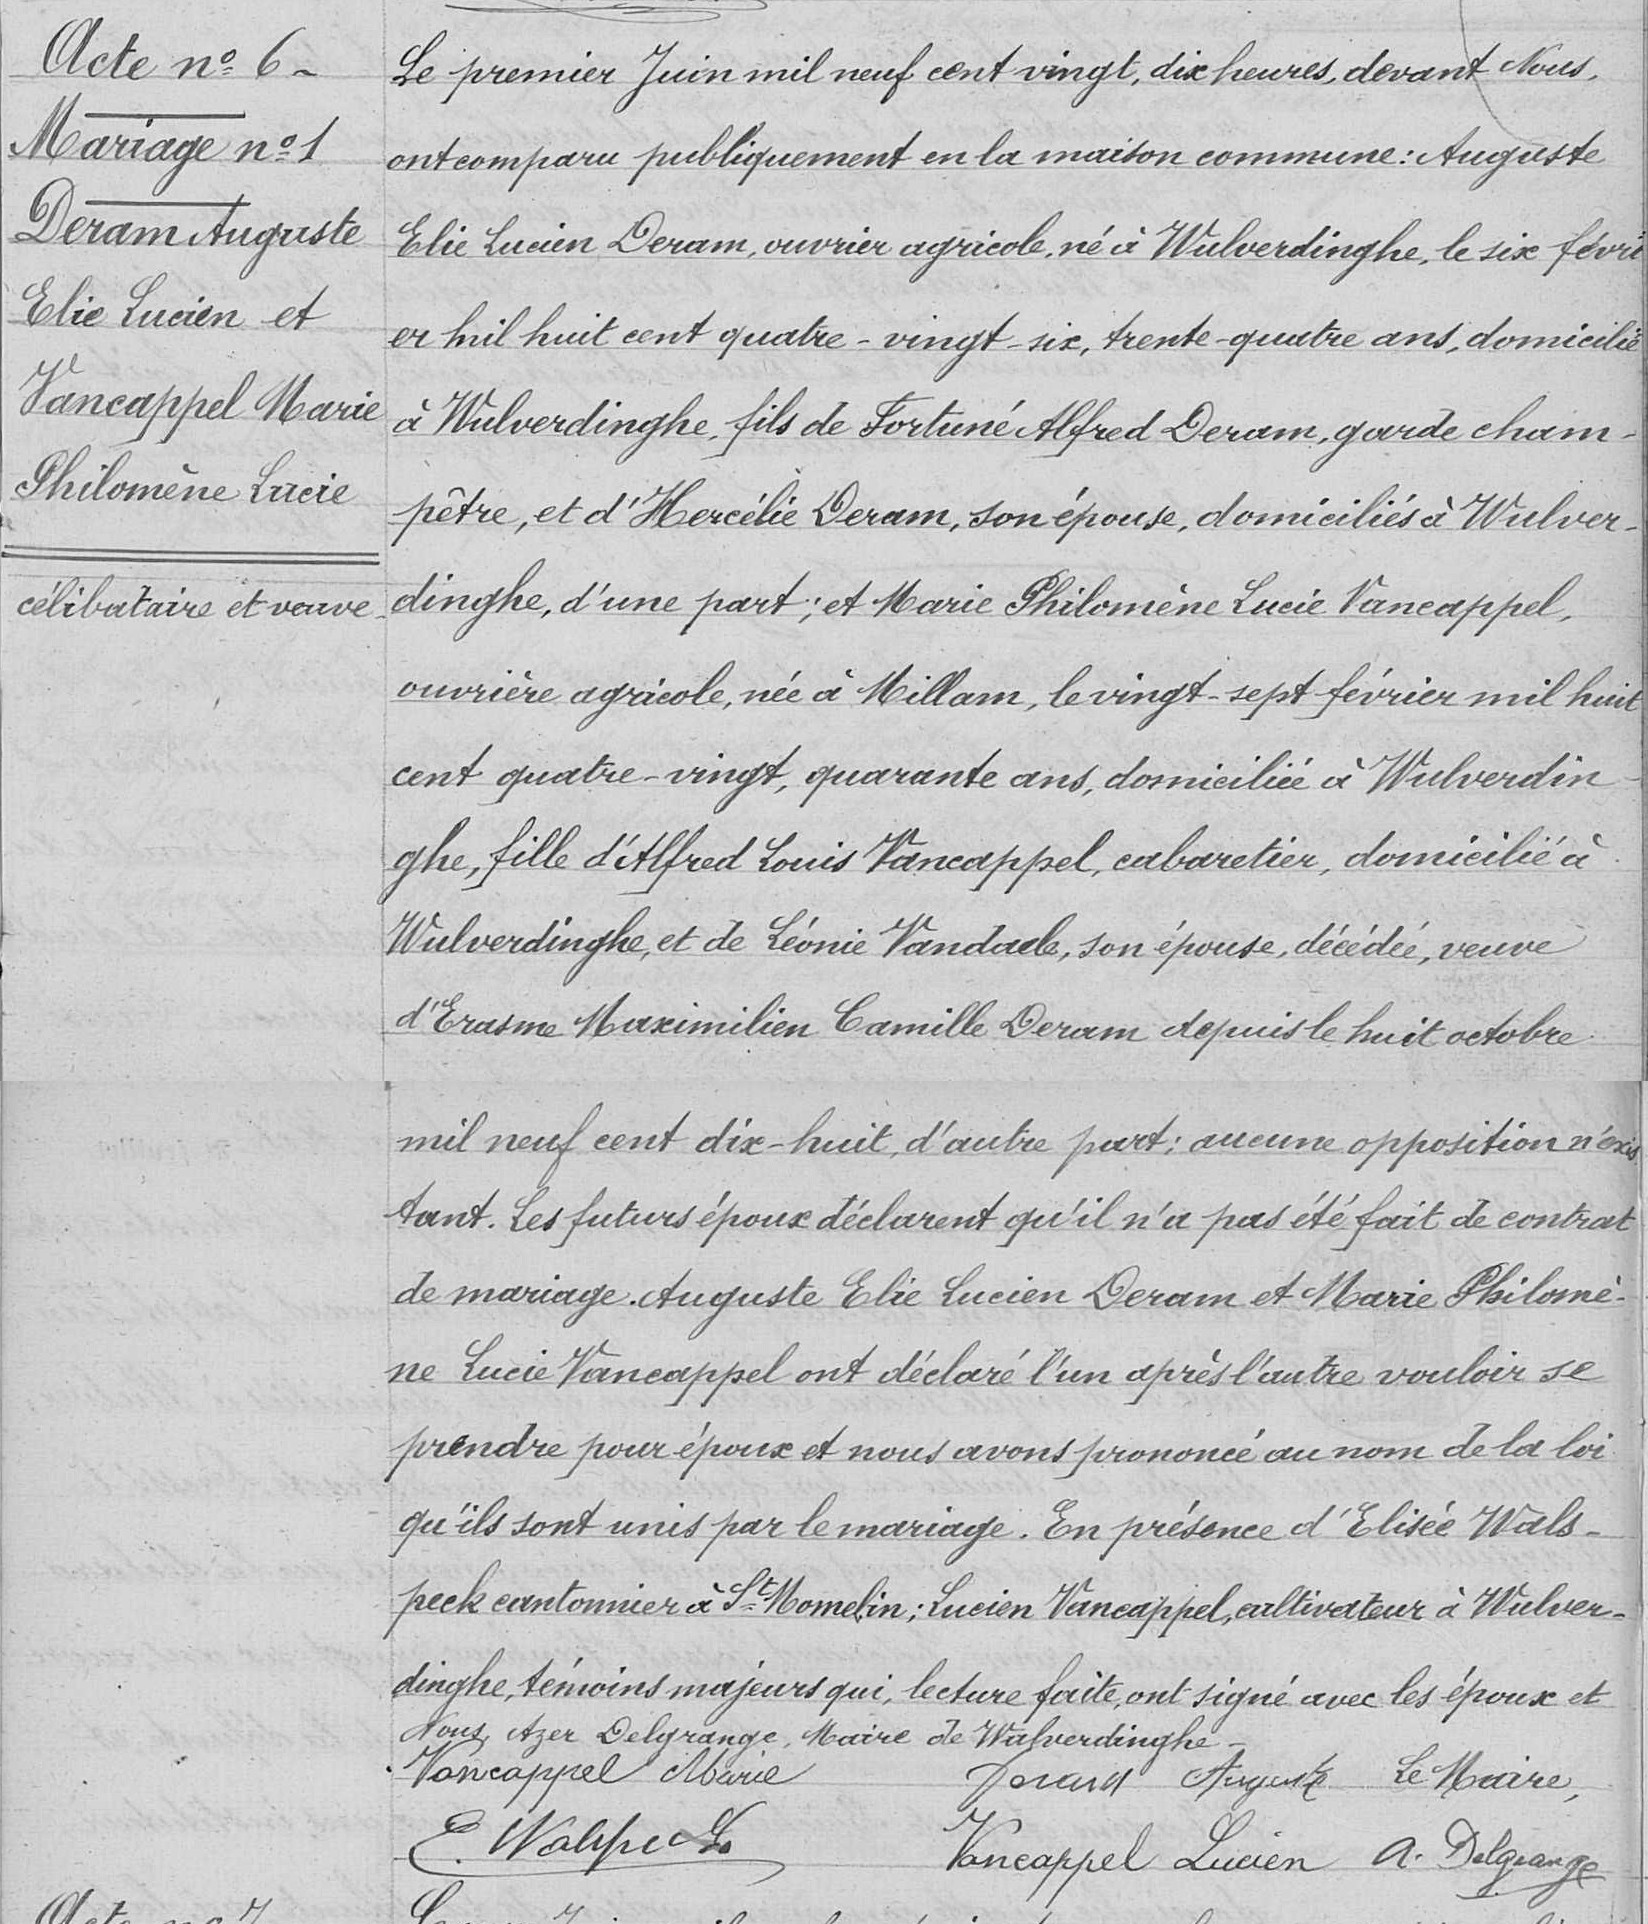 Acte nº 6 -
Mariage nº 1
Deram Auguste
Elie Lucien et
Vancappel Marie
Philomène Lucie
célibataire et veuve
Le premier Juin mil neuf cent vingt, dix heures, devant Nous,
ont comparu publiquement en la maison commune : Auguste
Elie Lucien Deram, ouvrier agricole, né à Wulverdinghe, le six févri
er mil huit cent quatre-vingt-six, trente-quatre ans, domicilié
à Wulverdinghe, fils de Fortuné Alfred Deram, garde cham-
pêtre, et d'Hercélie Deram, son épouse, domiciliés à Wulver-
dinghe, d'une part ; et Marie Philomène Lucie Vancappel,
ouvrière agricole, née à Millam, le vingt-sept février mil huit
cent quatre-vingt, quarante ans, domiciliée à Wulverdin-
ghe, fille d'Alfred Louis Vancappel, cabaretier, domicilié à
Wulverdinghe, et de Léonie Vandaele, son épouse, décédée, veuve
d'Erasme Maximilien Camille Deram depuis le huit octobre
mil neuf cent dix-huit, d'autre part ; aucune opposition n'exis
tant. Les futurs époux déclarent qu'il n'a pas été fait de contrat
de mariage. Auguste Elie Lucien Deram et Marie Philomè-
ne Lucie Vancappel ont déclaré l'un après l'autre vouloir se
prendre pour époux et nous avons prononcé au nom de la loi
qu'ils sont unis par le mariage. En présence d'Elisée Wals-
peck cantonnier à St Momelin ; Lucien Vancappel, cultivateur à Wulver-
dinghe, témoins majeurs qui, lecture faite, ont signé avec les époux et
Nous, Azer Delgrange, Maire de Wulverdinghe -
Vancappel Marie Deram Auguste Le Maire,
E. Walspeck Vancappel Lucien A. Delgrange
Acte nº 7